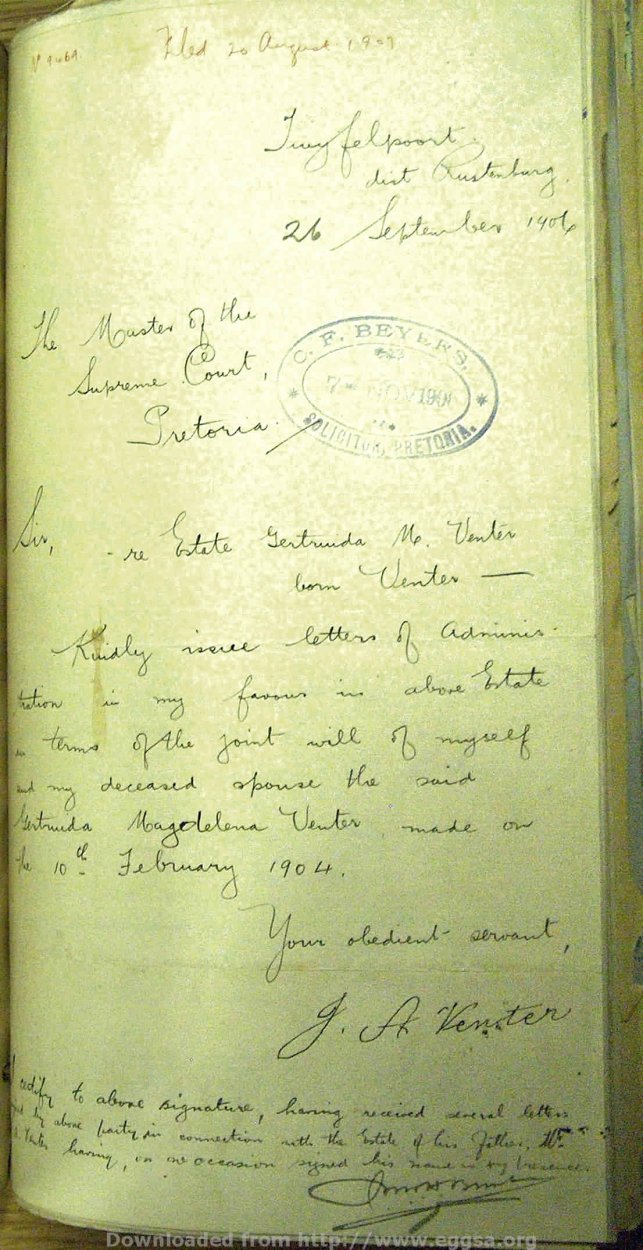 Filed 20 August 1907
Twyfelpoort
dist Rustenburg.
26 September 1906
The Master of the
Supreme Court,
Pretoria.
C. F. BEYERS,
7 NOV 190
SOLICITOR, PRETORIA.
Sir,
- re Estate Gertruida M. Venter
born Venter —
Kindly issue letters of Adminis-
tration in my favour in above Estate
in terms of the joint will of myself
and my deceased spouse the said
Gertruida Magdelena Venter, made on
the 10th February 1904.
Your obedient servant,
J. A Venter
I certify to above signature, having received several letters
signed by above party in connection with the Estate of his Father, Mr
Venter having, on one occasion signed his name in my presence.
Downloaded from http://www.eggsa.org